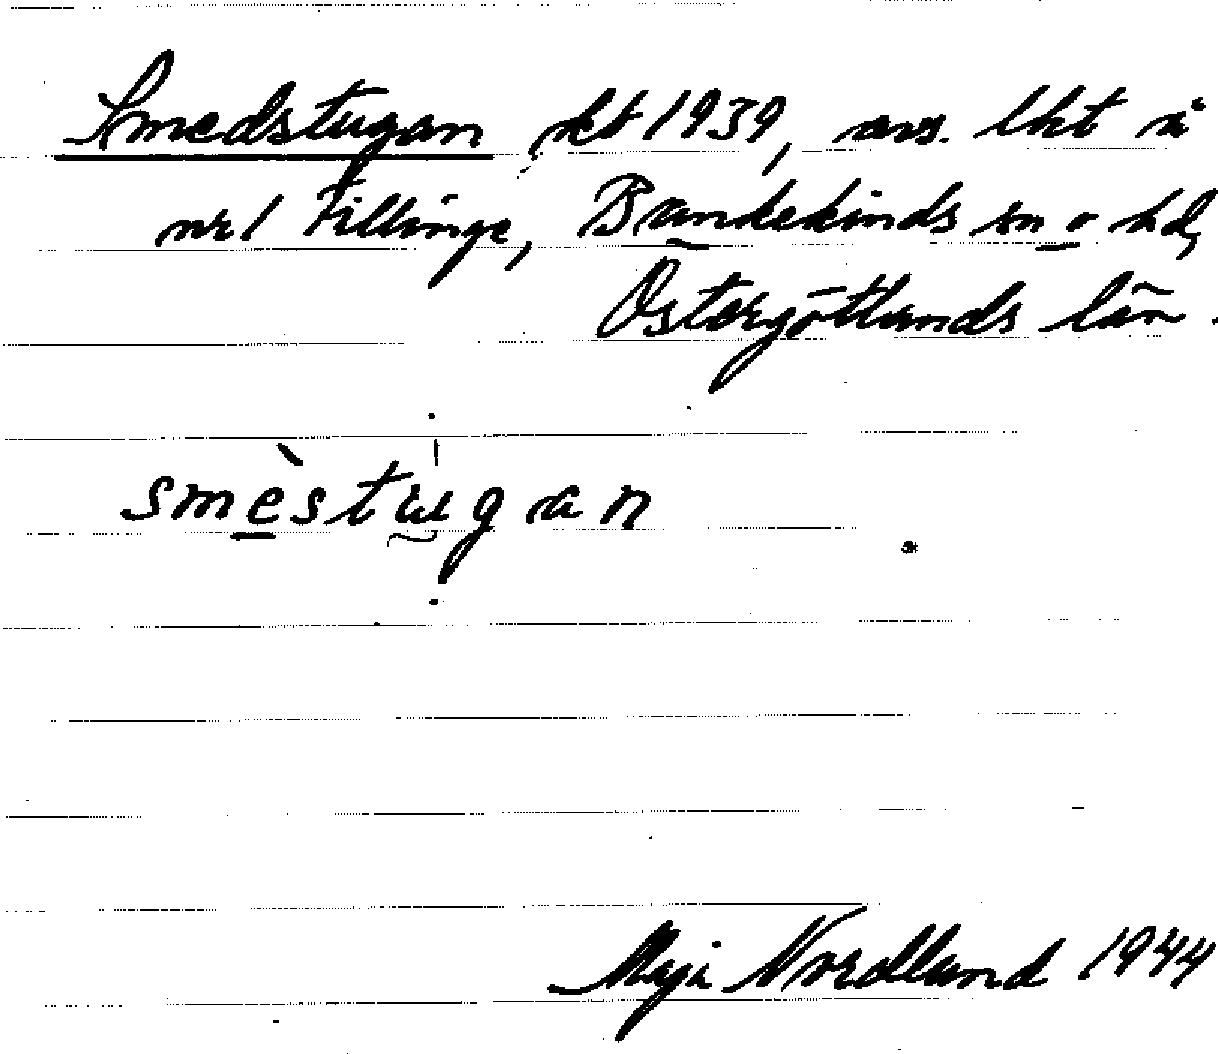 Smedstugan, kt 1939, avs. lht å
nr 1 Fillinge, Bankekinds sn o hd,
Östergötlands län.
smèstugan
Maja Nordlund 1944